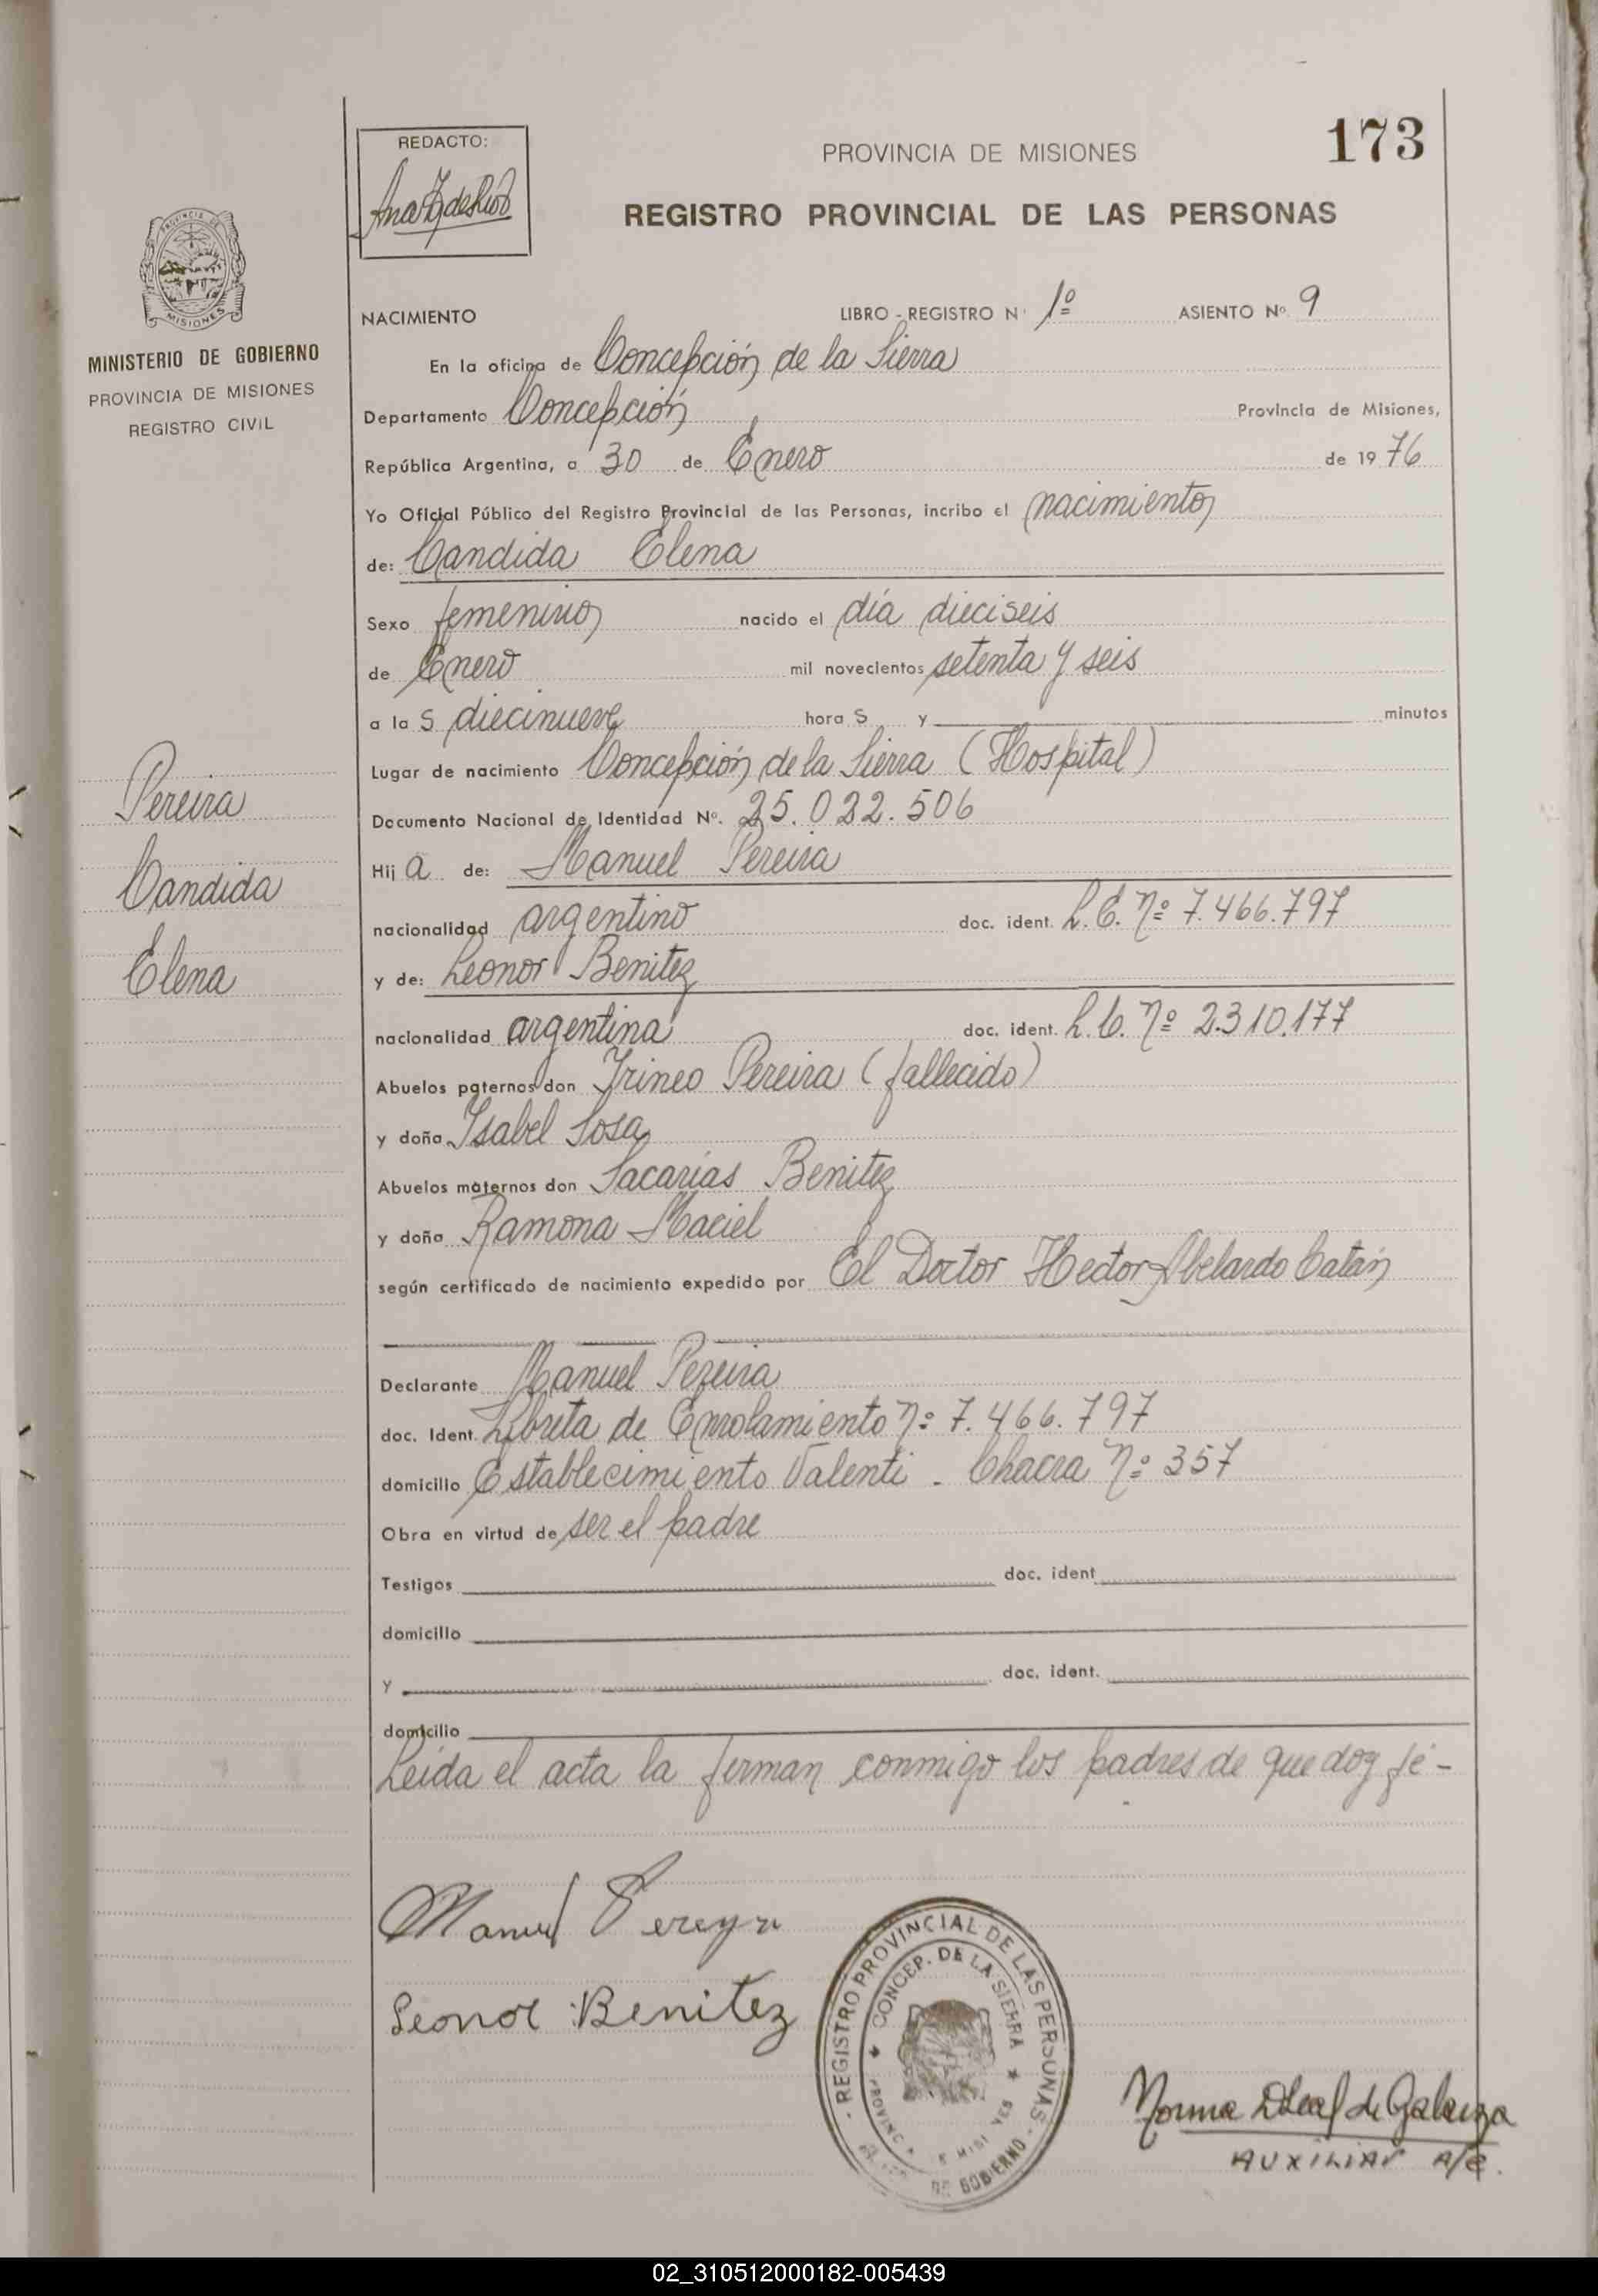 173
REDACTO:
PROVINCIA DE MISIONES
REGISTRO PROVINCIAL DE LAS PERSONAS
PROVINCIA DE
MISIONES
MINISTERIO DE GOBIERNO
PROVINCIA DE MISIONES
REGISTRO CIVIL
NACIMIENTO LIBRO - REGISTRO Nº 1º ASIENTO Nº 9
En la oficina de Concepción de la Sierra
Departamento Concepción Provincia de Misiones,
República Argentina, a 30 de Enero de 1976
Yo Oficial Público del Registro Provincial de las Personas, incribo el nacimiento
de: Candida Elena
Sexo femenino nacido el día dieciseis
de Enero mil novecientos setenta y seis
a las diecinueve horas y minutos
Lugar de nacimiento Concepción de la Sierra (Hospital)
Documento Nacional de Identidad Nº. 25.022.506
Hija de: Manuel Pereira
nacionalidad argentino doc. ident. L.E. Nº 7.466.797
y de: Leonor Benitez
nacionalidad argentina doc. ident. L.C. Nº 2.310.177
Abuelos paternos don Irineo Pereira (fallecido)
y doña Isabel Sosa
Abuelos maternos don Sacarías Benitez
y doña Ramona Maciel
según certificado de nacimiento expedido por El Doctor Hector Abelardo Catán
Declarante Manuel Pereira
doc. Ident. Libreta de Enrolamiento Nº 7.466.797
domicilio Establecimiento Valenti - Chacra Nº 357
Obra en virtud de ser el padre
Testigos doc. ident
domicilio
y doc. ident.
domicilio
Leída el acta la firman conmigo los padres de que doy fé-
Pereira
Candida
Elena
Manuel Pereyra
Leonor Benitez
- REGISTRO PROVINCIAL DE LAS PERSONAS -
CONCEP. DE LA SIERRA
DE GOBIERNO
Norma Leal de Galarza
AUXILIAR A/C.
02_310512000182-005439